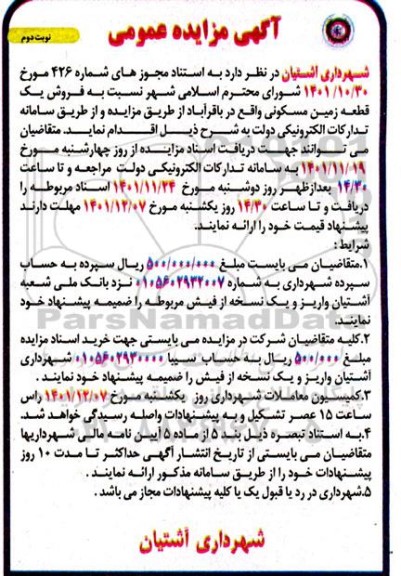 آگهی مزایده عمومی
نوبت دوم
شهرداری آشتیان در نظر دارد به استناد مجوز های شماره ۴۲۶ مورخ
۱۴۰۱/۱۰/۳۰ شورای محترم اسلامی شهر نسبت به فروش یک
قطعه زمین مسکونی واقع در باقرآباد از طریق مزایده و از طریق سامانه
تدارکات الکترونیکی دولت به شرح ذیل اقدام نماید. متقاضیان
می توانند جهت دریافت اسناد مزایده از روز چهارشنبه مورخ
۱۴۰۱/۱۱/۱۹ به سامانه تدارکات الکترونیکی دولت مراجعه و تا ساعت
۱۴/۳۰ بعدازظهر روز دوشنبه مورخ ۱۴۰۱/۱۱/۲۴ اسناد مربوطه را
دریافت و تا ساعت ۱۴/۳۰ روز یکشنبه مورخ ۱۴۰۱/۱۲/۰۷ مهلت دارند
پیشنهاد قیمت خود را ارائه نمایند.
شرایط :
۱.متقاضیان می بایست مبلغ ۵۰۰/۰۰۰/۰۰۰ ریال سپرده به حساب
سپرده شهرداری به شماره ۰۱۰۵۶۰۲۹۳۲۰۰۷ نزد بانک ملی شعبه
آشتیان واریز و یک نسخه از فیش مربوطه را ضمیمه پیشنهاد خود
نمایند.
۲.کلیه متقاضیان شرکت در مزایده می بایستی جهت خرید اسناد مزایده
مبلغ ۵۰۰/۰۰۰ ریال به حساب سیبا ۰۱۰۵۶۰۲۹۳۰۰۰۰ شهرداری
آشتیان واریز و یک نسخه از فیش را ضمیمه پیشنهاد خود نمایند .
۳.کمیسیون معاملات شهرداری روز یکشنبه مورخ ۱۴۰۱/۱۲/۰۷ راس
ساعت ۱۵ عصر تشکیل و به پیشنهادات واصله رسیدگی خواهد شد.
۴.به استناد تبصره ذیل بند ۵ از ماده ۵ آیین نامه مالی شهرداریها
متقاضیان می بایستی از تاریخ انتشار آگهی حداکثر تا مدت ۱۰ روز
پیشنهادات خود را از طریق سامانه مذکور ارائه نمایند .
۵.شهرداری در رد یا قبول یک یا کلیه پیشنهادات مجاز می باشد .
شهرداری آشتیان
ParsNamadData